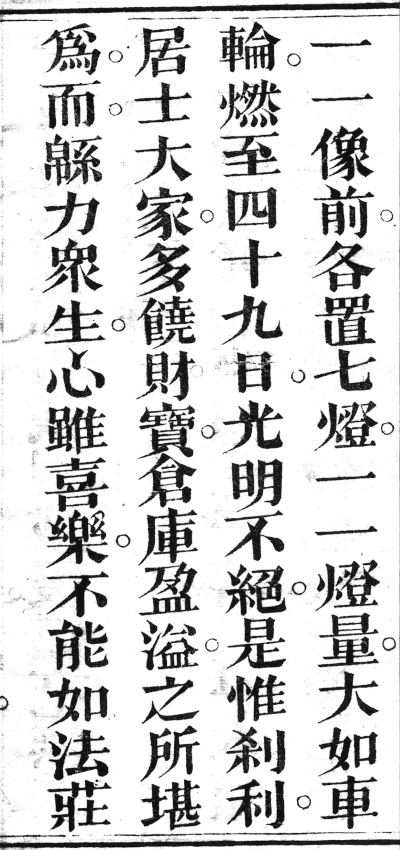 一一像前。各置七燈。一一燈。量。大如車
輪。燃至四十九日。光明不絕。是惟剎利。
居士大家。多饒財寶。倉庫盈溢。之所堪
為。而。緜力眾生。心雖喜樂。不能如法莊